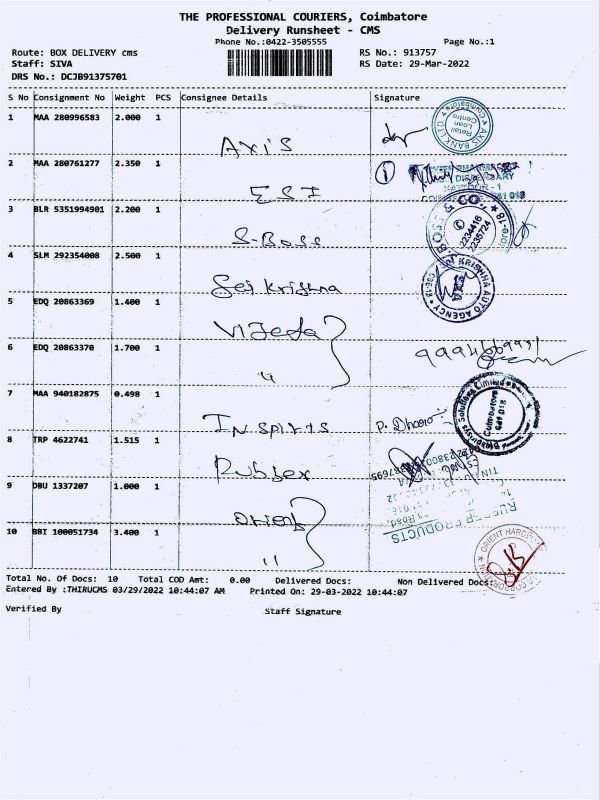 THE PROFESSIONAL COURIERS, Coimbatore
Delivery Runsheet - CMS
Phone No.:0422-3505555 Page No.:1
Route: BOX DELIVERY cms RS No.: 913757
Staff: SIVA RS Date: 29-Mar-2022
DRS No.: DCJB91375701
S No Consignment No Weight PCS Consignee Details Signature
1 MAA 280996583 2.000 1
AXIS
AXIS BANK LTD
Retail
Loan
Centre
Coimbatore
2 MAA 280761277 2.350 1
ESI
3 BLR 5351994901 2.200 1
S-Boss
BOSS & CO.,
2234416
2235724
4 SLM 292354008 2.500 1
Sri Krishna
KRISHNA AUTO AGENCY
5 EDQ 20863369 1.400 1
6 EDQ 20863370 1.700 1
7 MAA 940182875 0.498 1
Solutions Limited
Coimbatore
641 018
8 TRP 4622741 1.515 1
Rubber
PRODUCTS
9 DBU 1337207 1.000 1
Orient
10 BBI 100051734 3.400 1
ORIENT HARDWARE
Total No. Of Docs: 10 Total COD Amt: 0.00 Delivered Docs: Non Delivered Docs:
Entered By :THIRUCMS 03/29/2022 10:44:07 AM Printed On: 29-03-2022 10:44:07
Verified By Staff Signature